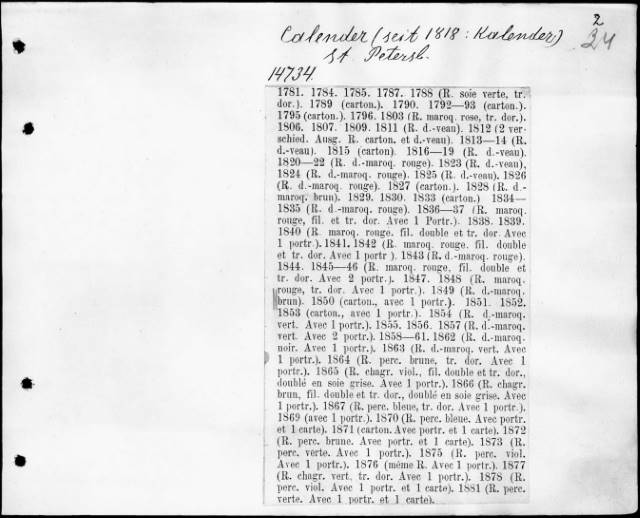 2
24
Calender (seit 1818: Kalender)
St. Petersb.
14734.
1781. 1784. 1785. 1787. 1788 (R. soie verte, tr.
dor.). 1789 (carton.). 1790. 1792—93 (carton.).
1795 (carton.). 1796. 1803 (R. maroq. rose, tr. dor.).
1806. 1807. 1809. 1811 (R. d.-veau). 1812 (2 ver-
schied. Ausg. R. carton. et d.-veau). 1813—14 (R.
d.-veau). 1815 (carton). 1816—19 (R. d.-veau).
1820—22 (R. d.-maroq. rouge). 1823 (R. d.-veau),
1824 (R. d.-maroq. rouge). 1825 (R. d.-veau). 1826
(R. d.-maroq. rouge). 1827 (carton.). 1828 (R. d.-
maroq. brun). 1829. 1830. 1833 (carton.) 1834—
1835 (R. d.-maroq. rouge). 1836—37 (R. maroq.
rouge, fil. et tr. dor. Avec 1 Portr.). 1838. 1839.
1840 (R. maroq. rouge. fil. double et tr. dor. Avec
1 portr.). 1841. 1842 (R. maroq. rouge. fil. double
et tr. dor. Avec 1 portr ). 1843 (R. d.-maroq. rouge).
1844. 1845—46 (R. maroq. rouge, fil. double et
tr. dor. Avec 2 portr.). 1847. 1848 (R. maroq.
rouge, tr. dor. Avec 1 portr.). 1849 (R. d.-maroq.
brun). 1850 (carton., avec 1 portr.). 1851. 1852.
1853 (carton., avec 1 portr.). 1854 (R. d.-maroq.
vert. Avec 1 portr.). 1855. 1856. 1857 (R. d.-maroq.
vert. Avec 2 portr.). 1858—61. 1862 (R. d.-maroq.
noir. Avec 1 portr.). 1863 (R. d.-maroq. vert. Avec
1 portr.). 1864 (R. perc. brune, tr. dor. Avec 1
portr.). 1865 (R. chagr. viol., fil. double et tr. dor.,
doublé en soie grise. Avec 1 portr.). 1866 (R. chagr.
brun, fil. double et tr. dor., doublé en soie grise. Avec
1 portr.). 1867 (R. perc. bleue, tr. dor. Avec 1 portr.).
1869 (avec 1 portr.). 1870 (R. perc. bleue. Avec portr.
et 1 carte). 1871 (carton. Avec portr. et 1 carte). 1872
(R. perc. brune. Avec portr. et 1 carte). 1873 (R.
perc. verte. Avec 1 portr.). 1875 (R. perc. viol.
Avec 1 portr.). 1876 (même R. Avec 1 portr.). 1877
(R. chagr. vert, tr. dor. Avec 1 portr.). 1878 (R.
perc. viol. Avec 1 portr. et 1 carte). 1881 (R. perc.
verte. Avec 1 portr. et 1 carte).